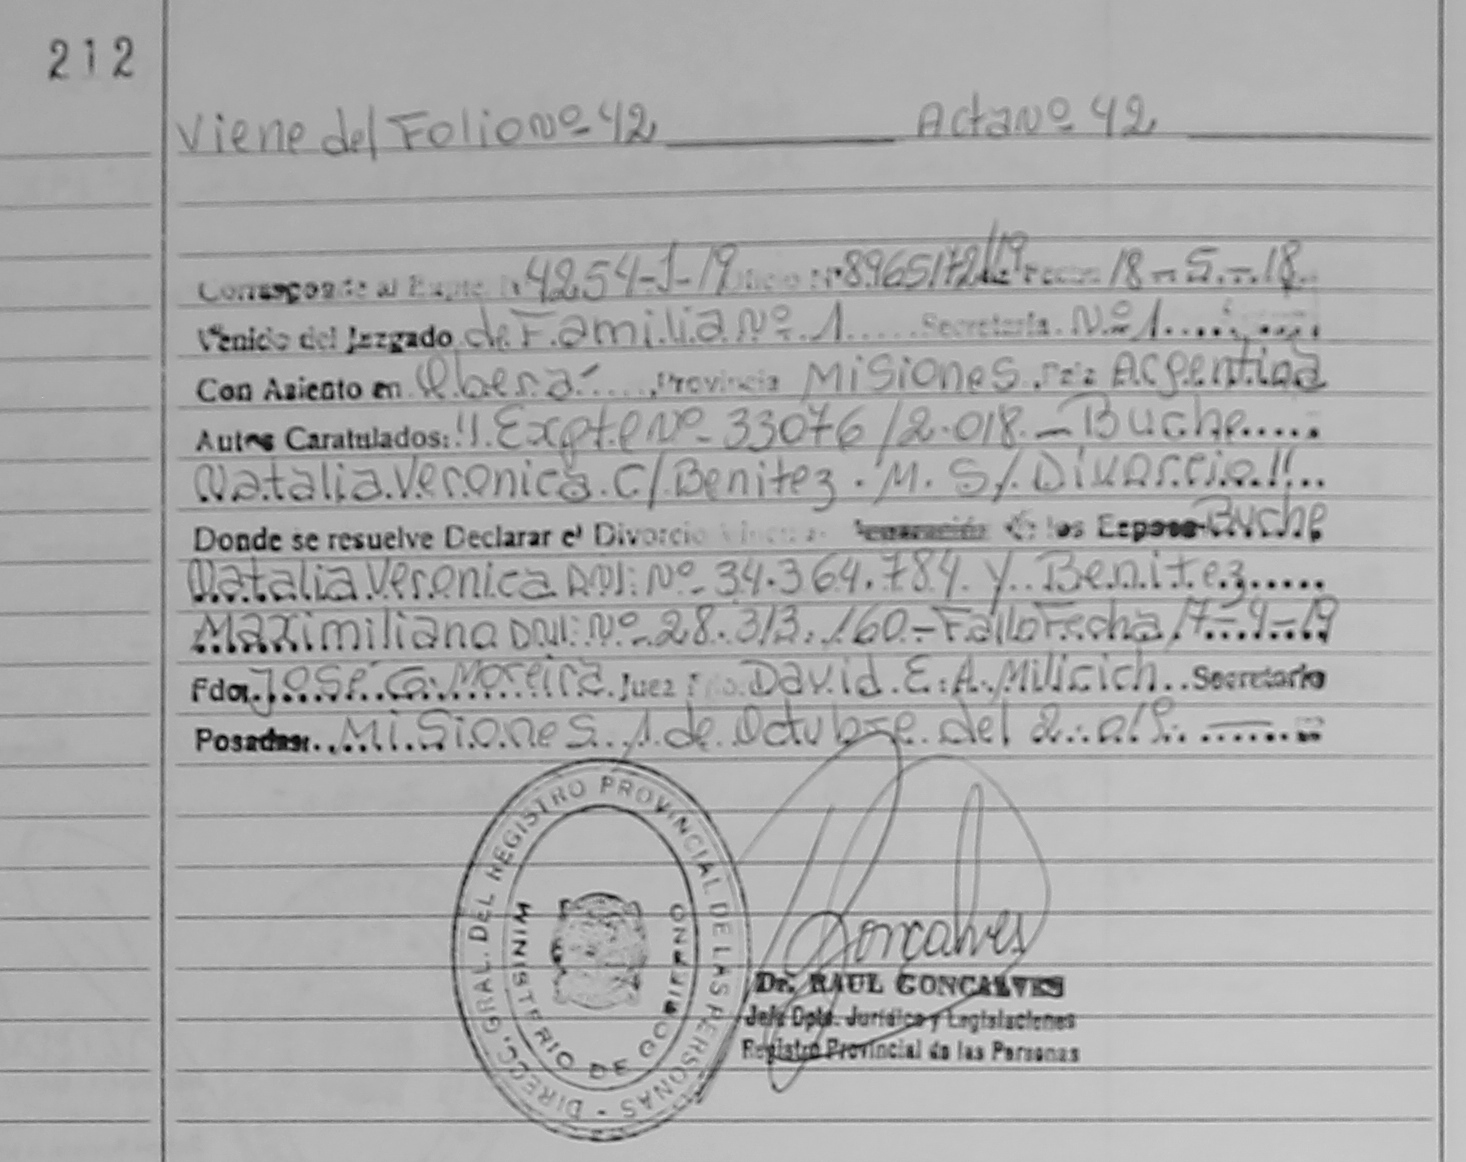 212
Viene del Folio Nº 42 Acta Nº 42
Corresponde al Expte Nº 4254-1-19 18-5-18
Venido del Juzgado de Familia Nº 1 Secretaria Nº 1
Con Asiento en Oberá Provincia Misiones Argentina
Autos Caratulados: "Expte Nº 33076/2.018 - Buche
Natalia Veronica C/ Benitez M. S/ Divorcio"
Donde se resuelve Declarar el Divorcio los Esposo Buche
Natalia Veronica DNI: Nº 34.364.784 y Benitez
Maximiliano DNI: Nº 28.313.160 - Fallo Fecha 17-9-19
Fdo: José G. Moreira Juez David E. A. Milicich Secretario
Posadas: Misiones 1 de Octubre del
DIRECC. GRAL. DEL REGISTRO PROVINCIAL DE LAS PERSONAS -
MINISTERIO DE GOBIERNO
Goncalves
Dr. RAUL GONCALVES
Jefe Dpto. Jurídico y Legislaciones
Registro Provincial de las Personas